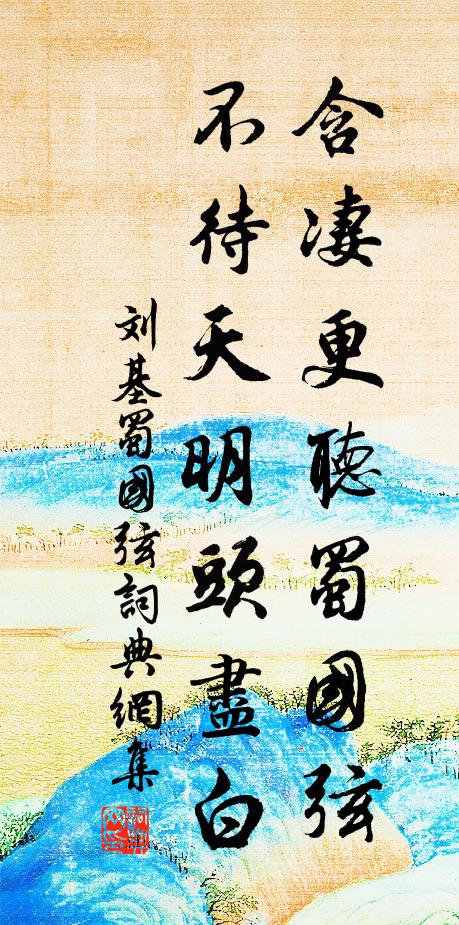 含淒更聽蜀國弦
不待天明頭盡白
刘基蜀國弦詞典網集